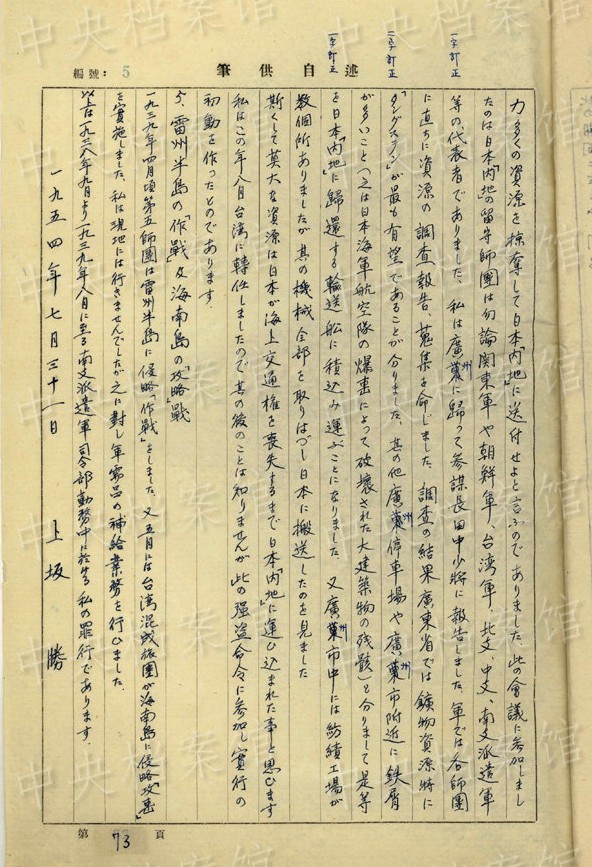 編號: 5
筆供自述
一字訂正
二字訂正
一字訂正
力多くの資源を掠奪して日本「内地」に送付せよと言ふのでありました 此の會議に参加しまし
たのは日本「内地」の留守師團は勿論関東軍や朝鮮軍、台湾軍、北支、中支、南支派遣軍
等の代表者でありました、私は廣州に歸って参謀長田中少將に報告しました、軍では各師團
に直ちに資源の調査、報告、蒐集を命じました、調査の結果廣東省では鑛物資源特に
「タングステン」が最も有望であることが分りました、其の他廣州停車場や廣州市附近に鉄屑
が多いこと(之は日本海軍航空隊の爆击によって破壊された大建築物の残骸)と分りまして是等
を日本「内地」に歸還する輸送船に積込み運ぶことになりました、又廣州市中には紡績工場が
数個所ありましたが其の機械全部を取りはづし日本に搬送したのを見ました
斯くして莫大な資源は日本が海上交通権を喪失するまで日本「内地」に運び込まれた事と思ひます
私はこの年八月台湾に轉任しましたので其の後のことは知りませんが此の强盗命令に参加し實行の
初動を作ったとのであります、
5、雷州半島の「作戰」及海南島の「攻略」戰
一九三九年四月頃第五師團は雷州半島に侵略「作戰」をしました、又五月には台湾混成旅團が海南島に侵略「攻击」
を實施しました、私は現地には行きませんでしたが之に對し軍需品の補給業務を行ひました、
以上は一九三八年九月より一九三九年八月に至る南支派遣軍司令部勤務中に於ける私の罪行であります、
一九五四年七月三十一日
上坂勝
第 73 頁
中央档案馆